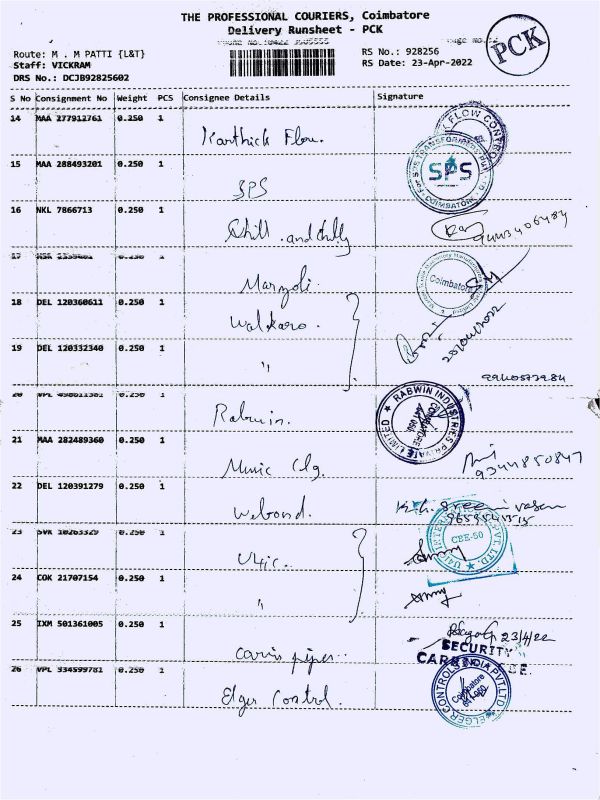 THE PROFESSIONAL COURIERS, Coimbatore
Delivery Runsheet - PCK
PCK
Route: M . M PATTI {L&T}
RS No.: 928256
Staff: VICKRAM
RS Date: 23-Apr-2022
DRS No.: DCJB92825602
S No Consignment No Weight PCS Consignee Details Signature
14 MAA 277912761 0.250 1
Karthick Flow.
FLOW CONTROL
15 MAA 288493201 0.250 1
SPS
SPS
COIMBATORE
16 NKL 7866713 0.250 1
Chill and chilly
9443406484
17 0.250 1
Marzoli
Coimbatore
18 DEL 120360611 0.250 1
Walkaro.
19 DEL 120332340 0.250 1
"
20 0.250 1
Rabwin.
RABWIN INDUSTRIES PRIVATE LIMITED
COIMBATORE
21 MAA 282489360 0.250 1
9344850847
22 DEL 120391279 0.250 1
Webond.
K.G. Sreenivasan
23 SVK 10263329 0.250 1
CBE-50
24 COK 21707154 0.250 1
"
25 IXM 501361005 0.250 1
23/4/22
SECURITY
26 VPL 334599781 0.250 1
Elger Control.
ELGER CONTROLS INDIA PVT.LTD
Coimbatore